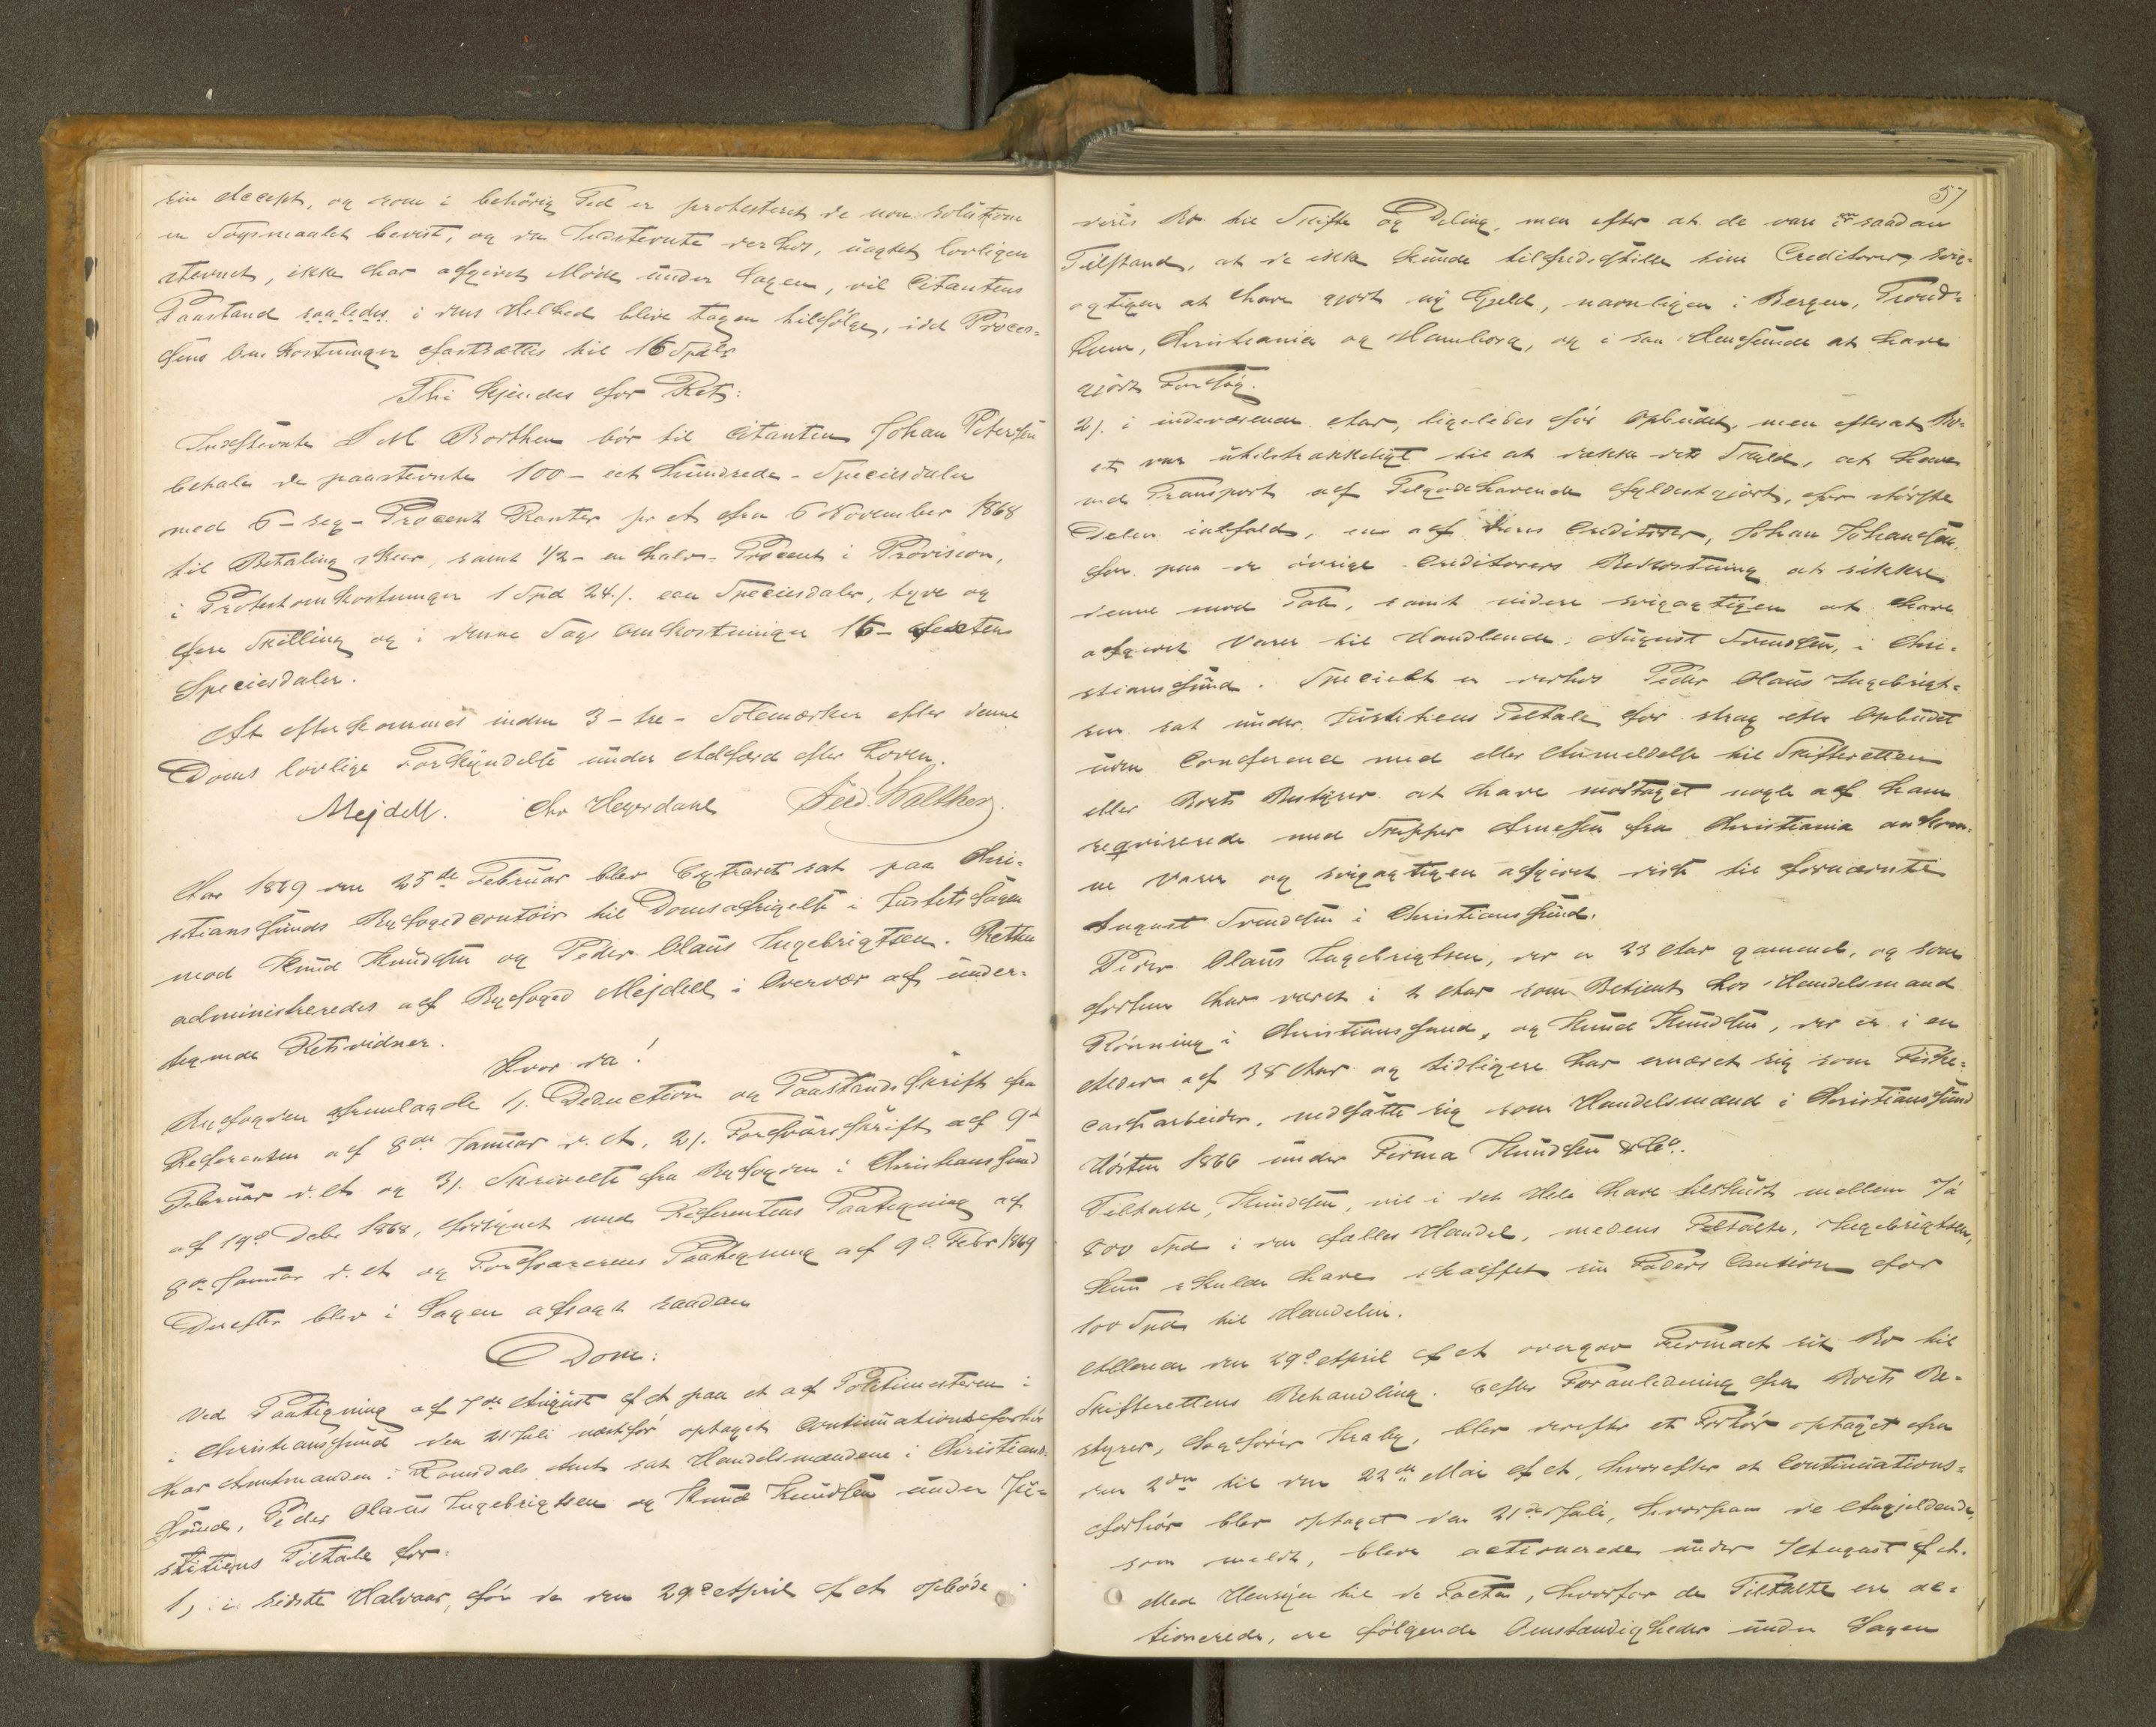 sin Accept, og som i behörig Tid er protesteret de non solutione
er Søgsmaalet bevist, og da Indstevnte derhos, uagtet lovligen
stevnet, ikke har afgivet Møde under Sagen, vil Citantens
Paastand saaledes i dens Helhed blive tagen tilfølge, idet Proces-
sens Omkostninger fastsættes til 16 Spdlr
Thi kjendes for Ret:
Indstevnte J M Borthen bör til Citanten Johan Petersen
betale de paastevnte 100 – eet hundrede – Speciesdaler
med 6 – sex – Procent Renter pr At fra 6 November 1868
til Betaling skeer, samt 1/2 – en halv – Procent i Provision,
i Protestomkostninger 1 Spd 24 /. een Speciesdaler, tyve og
fire Skilling og i denne Sags Omkostninger 16 – sexten
Speciesdaler.
At efterkommes inden 3 – tre – Solemærker efter denne
Doms lovlige Forkyndelse under Adfærd efter Loven.
Mejdell. Chr Heyerdahl Ferd. Walther.
Aar 1869 den 25de Februar blev Extraret sat paa Chri-
stianssunds Byfogedcontoir til Domsafsigelse i Justitssagen
mod Knud Knudsen og Peder Olaus Ingebrigtsen. Retten
administreredes af Byfoged Mejdell i Overvær af under-
tegnede Retsvidner.
Hvor da!
Byfogden fremlagde 1/. Deduction og Paastandsskrift fra
Referenten af 8de Januar d. A, 2/. Forsvarsskrift af 9d
Februar d. A og 3/. Skrivelse fra Byfogden i Christianssund
af 19d Debr 1868, forsynet med Referentens Paategning af
8de Januar d. A og Forsvarerens Paategning af 9d Febr 1869
Derefter blev i Sagen afsagt saadan
Dom:
Ved Paategning af 7de August f A paa et af Politimesteren i
i Christianssund den 21 Juli næstfør optaget Continuationsforhör
har Amtmanden i Romsdals Amt sat Handelsmændene i Christians-
sund, Peder Olaus Ingebrigtsen og Knud Knudsen under Ju-
stitiens Tiltale for:
1, i sidste Halvaar, för de den 29d April f A opböde
57
deres Bo til Skifte og Deling, men efter at de vare i saadan
Tilstand, at de ikke kunde tilfredsstille sine Creditorer, svig-
agtigen at have gjort ny Gjeld, navnligen i Bergen, Trond-
hjem, Christiania og Hamborg, og i saa Henseende at have
gjört Forsög.
2/. i indeværende Aar, ligeledes før Opbudet, men efterat Bo-
et var utilstrækkeligt til at dække dets Skyld, at have
ved Transport af Tilgodehavende fyldestgjort, for störste
Delen ialfald, en af deres Creditorer, Johan Johansen,
for paa de övrige Creditorers Bekostning at sikkre
denne mod Tab, samt videre svigagtigen at have
afgivet Varer til Handlende August Svendsen, i Chri-
stianssund. Specielt er derhos Peder Olaus Ingebrigt-
sen sat under Justitiens Tiltale for strax efter Opbudet
uden Conference med eller Anmeldelse til Skifteretten
eller Boets Bestyrer at have modtaget nogle af ham
reqvirerede med Skipper Arnesen fra Christiania ankom-
ne Varer og svigagtigen afgivet disse til fornævnte
August Svendsen i Christianssund.
Peder Olaus Ingebrigtsen, der er 23 Aar gammel, og som
forhen har været i 2 Aar som Betjent hos Handelsmand
Rönning i Christianssund, og Knud Knudsen, der er i en
Alder af 38 Aar og tidligere har ernæret sig som Fiske-
, nedsatte sig som Handelsmænd i Christianssund
Hösten 1866 under Firma Knudsen & Co.
Tiltalte, Knudsen, vil i det Hele have tilskudt mellem 7 à
800 Spd i den fælles Handel, medens Tiltalte, Ingebrigtsen,
kun skulde have skaffet sin Faders Caution for
100 Spd til Handelen.
Allerede den 29d April f A overgav Firmaet sit Bo til
Skifterettens Behandling. Efter Foranledning fra Boets Be-
styrer, Sagförer Kraby, blev derefter et Forhör optaget fra
den 2den til den 22de Mai f A, hvorefter et Continuations-
forhör blev optaget den 21de Juli, hvorpaa de Angjeldende,
som meldt, bleve actionerede under 7 August f A.
Med Hensyn til de Facta, hvorfor de Tiltalte ere ac-
tionerede, ere følgende Omstændigheder under Sagen